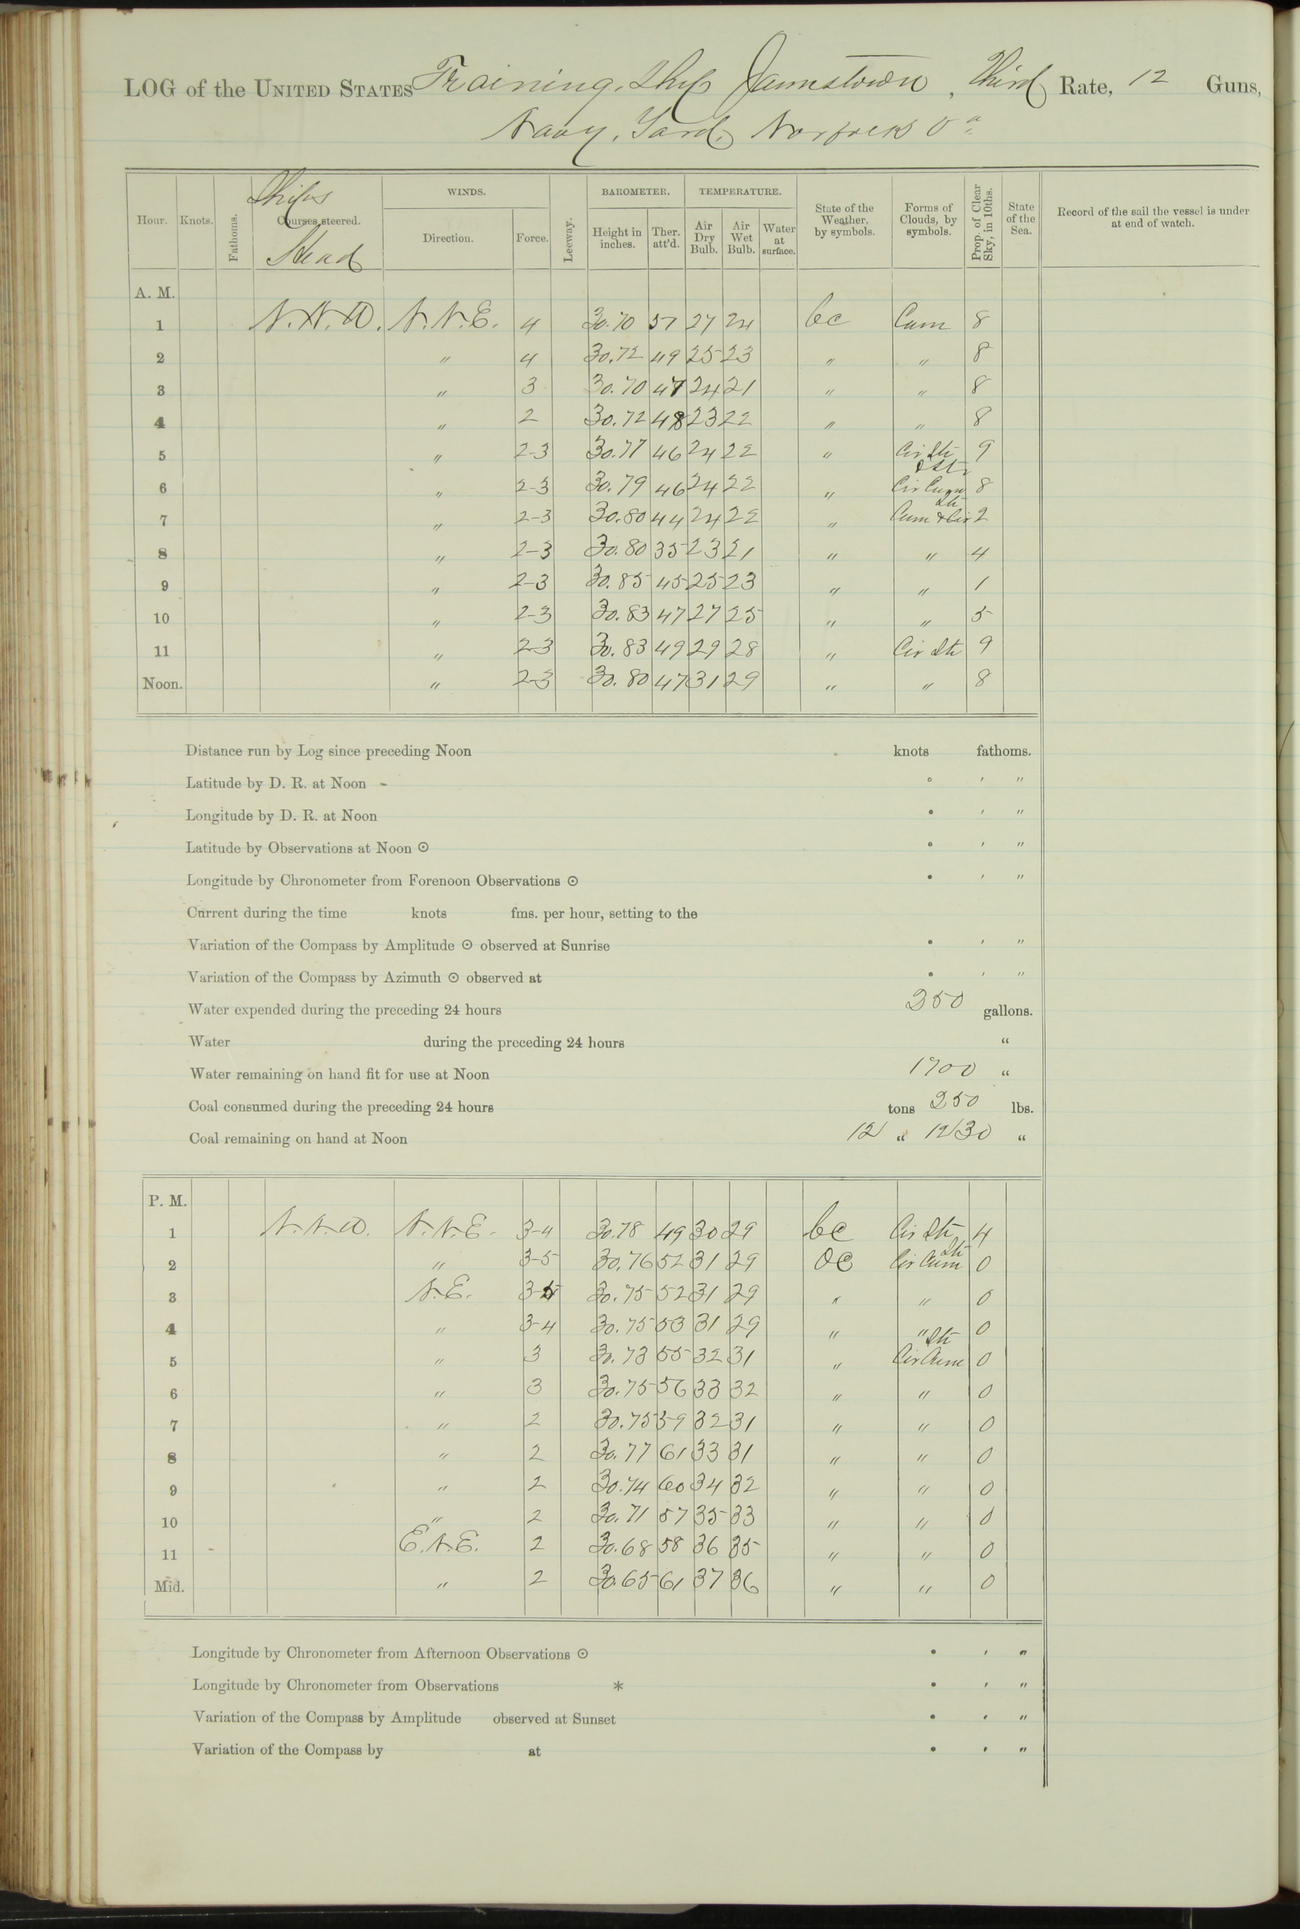 LOG of the UNITED STATES Training Ship Jamestown, Third Rate, 12 Guns,
Navy Yard, Norfolk Va
Ships
Hour. Knots. Fathoms. Courses steered. WINDS. Direction. Force. Leeway. BAROMETER. Height in inches. Ther. att'd. TEMPERATURE. Air Dry Bulb. Air Wet Bulb. Water at surface. State of the Weather, by symbols. Forms of Clouds, by symbols. Prop. of Clear Sky, in 10ths. State of the Sea. Record of the sail the vessel is under at end of watch.
Head
A. M.
1 N.N.W. N.N.E. 4 30.70 57 27 24 bc Cum 8
2 " 4 30.72 49 25 23 " " 8
3 " 3 30.70 47 24 21 " " 8
4 " 2 30.72 48 23 22 " " 8
5 " 2-3 30.77 46 24 22 " Cir Str 9
6 " 2-3 30.79 46 24 22 " & Str Cir Cum 8
7 " 2-3 30.80 44 24 22 " Str Cum & Cir 2
8 " 2-3 30.80 35 23 21 " " 4
9 " 2-3 30.85 45 25 23 " " 1
10 " 2-3 30.83 47 27 25 " " 5
11 " 2-3 30.83 49 29 28 " Cir Str 9
Noon. " 2-3 30.80 47 31 29 " " 8
Distance run by Log since preceding Noon knots fathoms.
Latitude by D. R. at Noon - ° ' "
Longitude by D. R. at Noon ° ' "
Latitude by Observations at Noon ⊙ ° ' "
Longitude by Chronometer from Forenoon Observations ⊙ ° ' "
Current during the time knots fms. per hour, setting to the
Variation of the Compass by Amplitude ⊙ observed at Sunrise ° ' "
Variation of the Compass by Azimuth ⊙ observed at ° ' "
Water expended during the preceding 24 hours 250 gallons.
Water during the preceding 24 hours "
Water remaining on hand fit for use at Noon 1700 "
Coal consumed during the preceding 24 hours tons 250 lbs.
Coal remaining on hand at Noon 12 " 1230 "
P. M.
1 N.N.W. N.N.E. 3-4 30.78 49 30 29 bc Cir Str 4
2 " 3-5 30.76 52 31 29 oc Str Cir Cum 0
3 N.E. 3-5 30.75 52 31 29 " " 0
4 " 3-4 30.75 53 31 29 " " 0
5 " 3 30.73 55 32 31 " Str Cir Cum 0
6 " 3 30.75 56 33 32 " " 0
7 " 2 30.75 59 32 31 " " 0
8 " 2 30.77 61 33 31 " " 0
9 " 2 30.74 60 34 32 " " 0
10 " 2 30.71 57 35 33 " " 0
11 E.N.E. 2 30.68 58 36 35 " " 0
Mid. " 2 30.65 61 37 36 " " 0
Longitude by Chronometer from Afternoon Observations ⊙ ° ' "
Longitude by Chronometer from Observations * ° ' "
Variation of the Compass by Amplitude observed at Sunset ° ' "
Variation of the Compass by at ° ' "